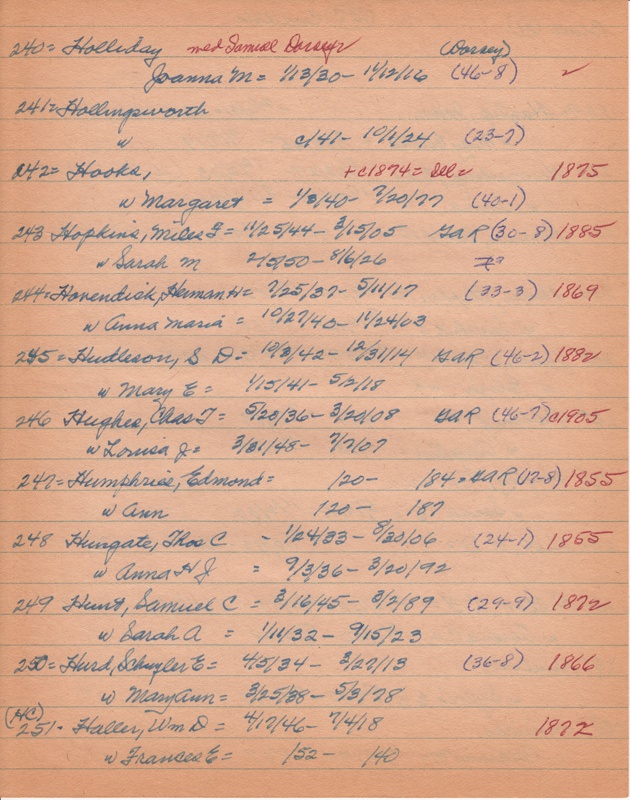 240= Holliday med Samuel Dorsey ✓ (Dorsey)
Joanna M = 1/13/30- 11/12/16 (46-8) ✓
241= Hollingsworth
w c/41- 10/1/24 (23-7)
242= Hooks, +c1874= Ill= 1875
w Margaret = 1/8/40- 7/20/77 (40-1)
243 Hopkins, Miles F= 11/25/44- 3/15/05 GaR (30-8) 1885
w Sarah M 2/5/50- 8/6/26
244= Hovendick, Herman H= 7/25/37- 5/11/17 (33-3) 1869
w Anna Maria = 10/27/40- 11/24/03
245= Hudleson, S D= 10/3/42- 12/31/14 GaR (46-2) 1882
w Mary E = 1/15/41- 5/2/18
246 Hughes, Chas T= 5/20/36- 3/20/08 GaR (46-7) c1905
w Louisa J= 3/31/48- 7/7/07
247= Humphries, Edmond= /20- /84= GaR (17-8) 1855
w Ann /20- /87
248 Hungate, Thos C. - 1/24/33- 8/30/06 (24-1) 1855
w Anna H J = 9/3/36- 3/20/92
249 Hunt, Samuel C = 3/16/45- 3/2/89 (29-9) 1872
w Sarah A = 1/11/32- 9/15/23
250= Hurd, Schuyler E= 4/5/34- 3/27/13 (36-8) 1866
w Mary Ann = 3/25/38- 5/3/78
(HC)
251- Haller, Wm D= 4/17/46- 7/4/18 1872
w Frances E= /52- /40